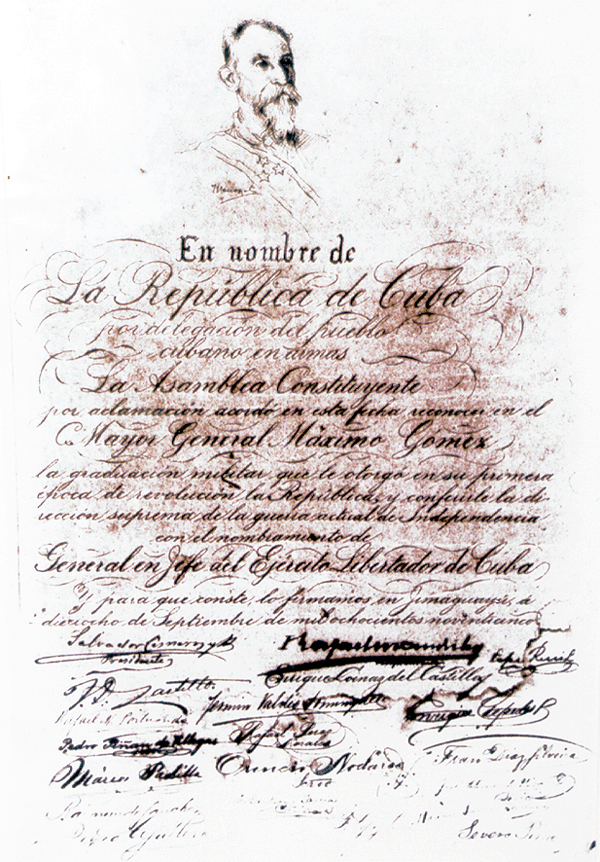 En nombre de
La República de Cuba
por delegación del pueblo
cubano en armas
La Asamblea Constituyente
por aclamación acordó en esta fecha reconocer en el
C. Mayor General Máximo Gómez
la graduación militar que le otorgó en su primera
época de revolución la República, y conferirle la di-
rección suprema de la guerra actual de Independencia
con el nombramiento de
General en Jefe del Ejército Libertador de Cuba
Y para que conste, lo firmamos en Jimaguayú, á
dieciocho de Septiembre de mil ochocientos noventicinco
Salvador Cisneros B
Presidente
Rafael Manduley
Enrique Loinaz del Castillo
J. D. Castillo
Fermín Valdés Domínguez
Rafael M Portuondo
Pedro Piñán de Villegas
Rafael Pérez
Marcos Padilla
Orencio Nodarse
Franco Díaz Silveira
Severo Pina